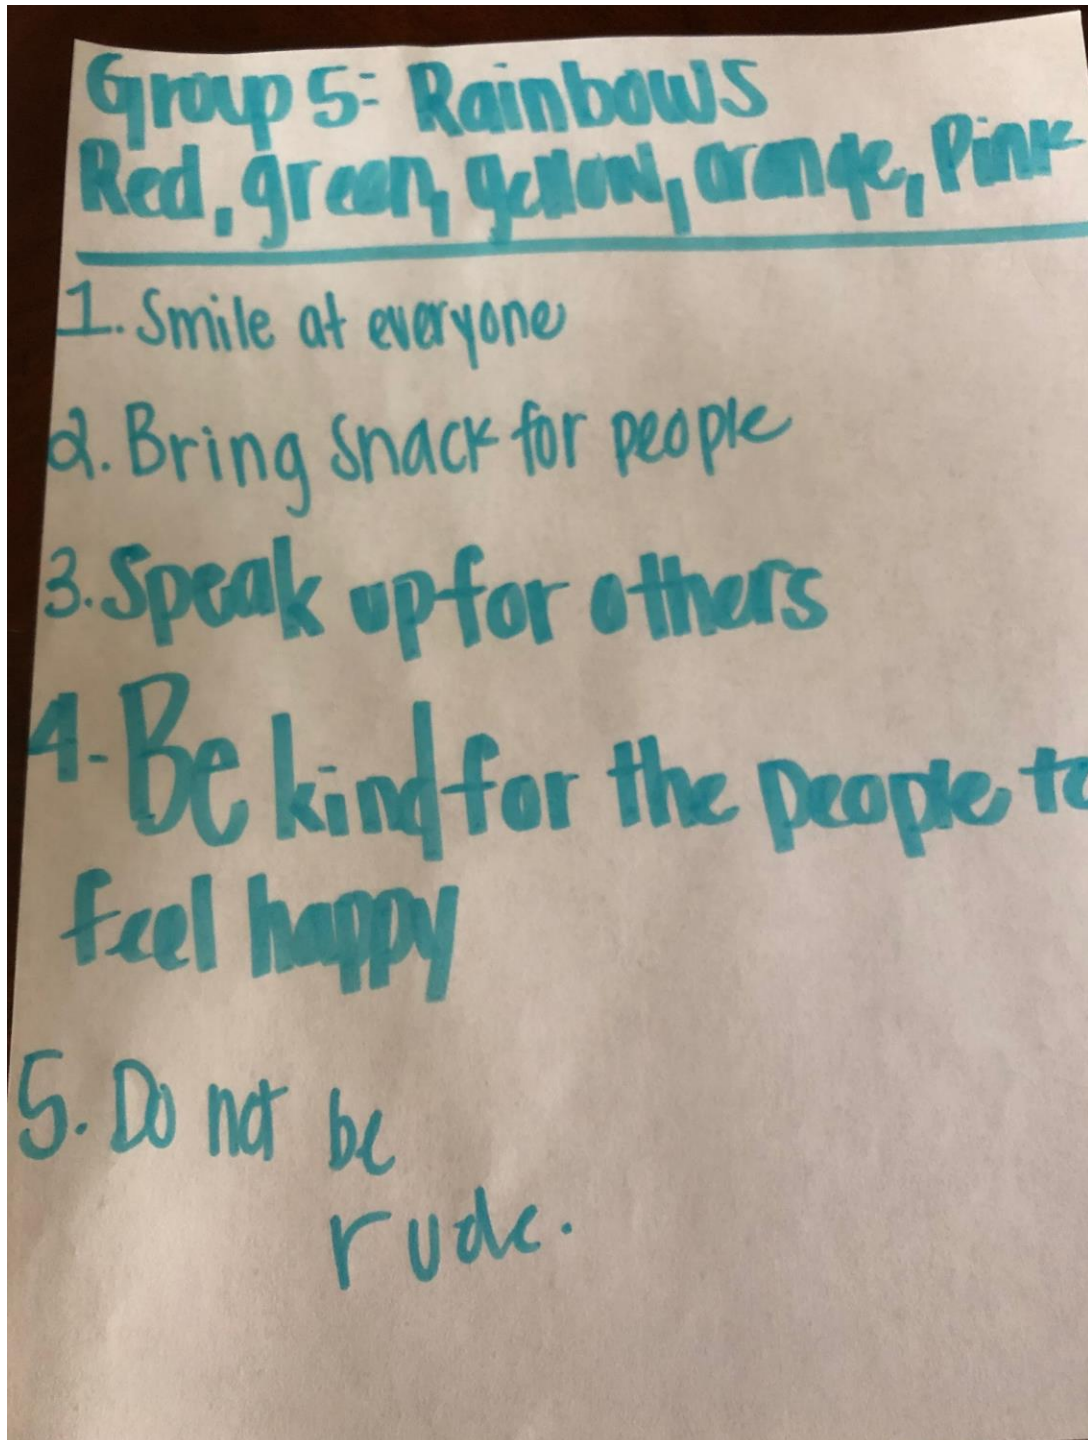 Group 5: Rainbows
Red, green, yellow, orange, Pink
1. Smile at everyone
2. Bring snack for people
3. Speak up for others
4. Be kind for the people to
feel happy
5. Do not be
rude.